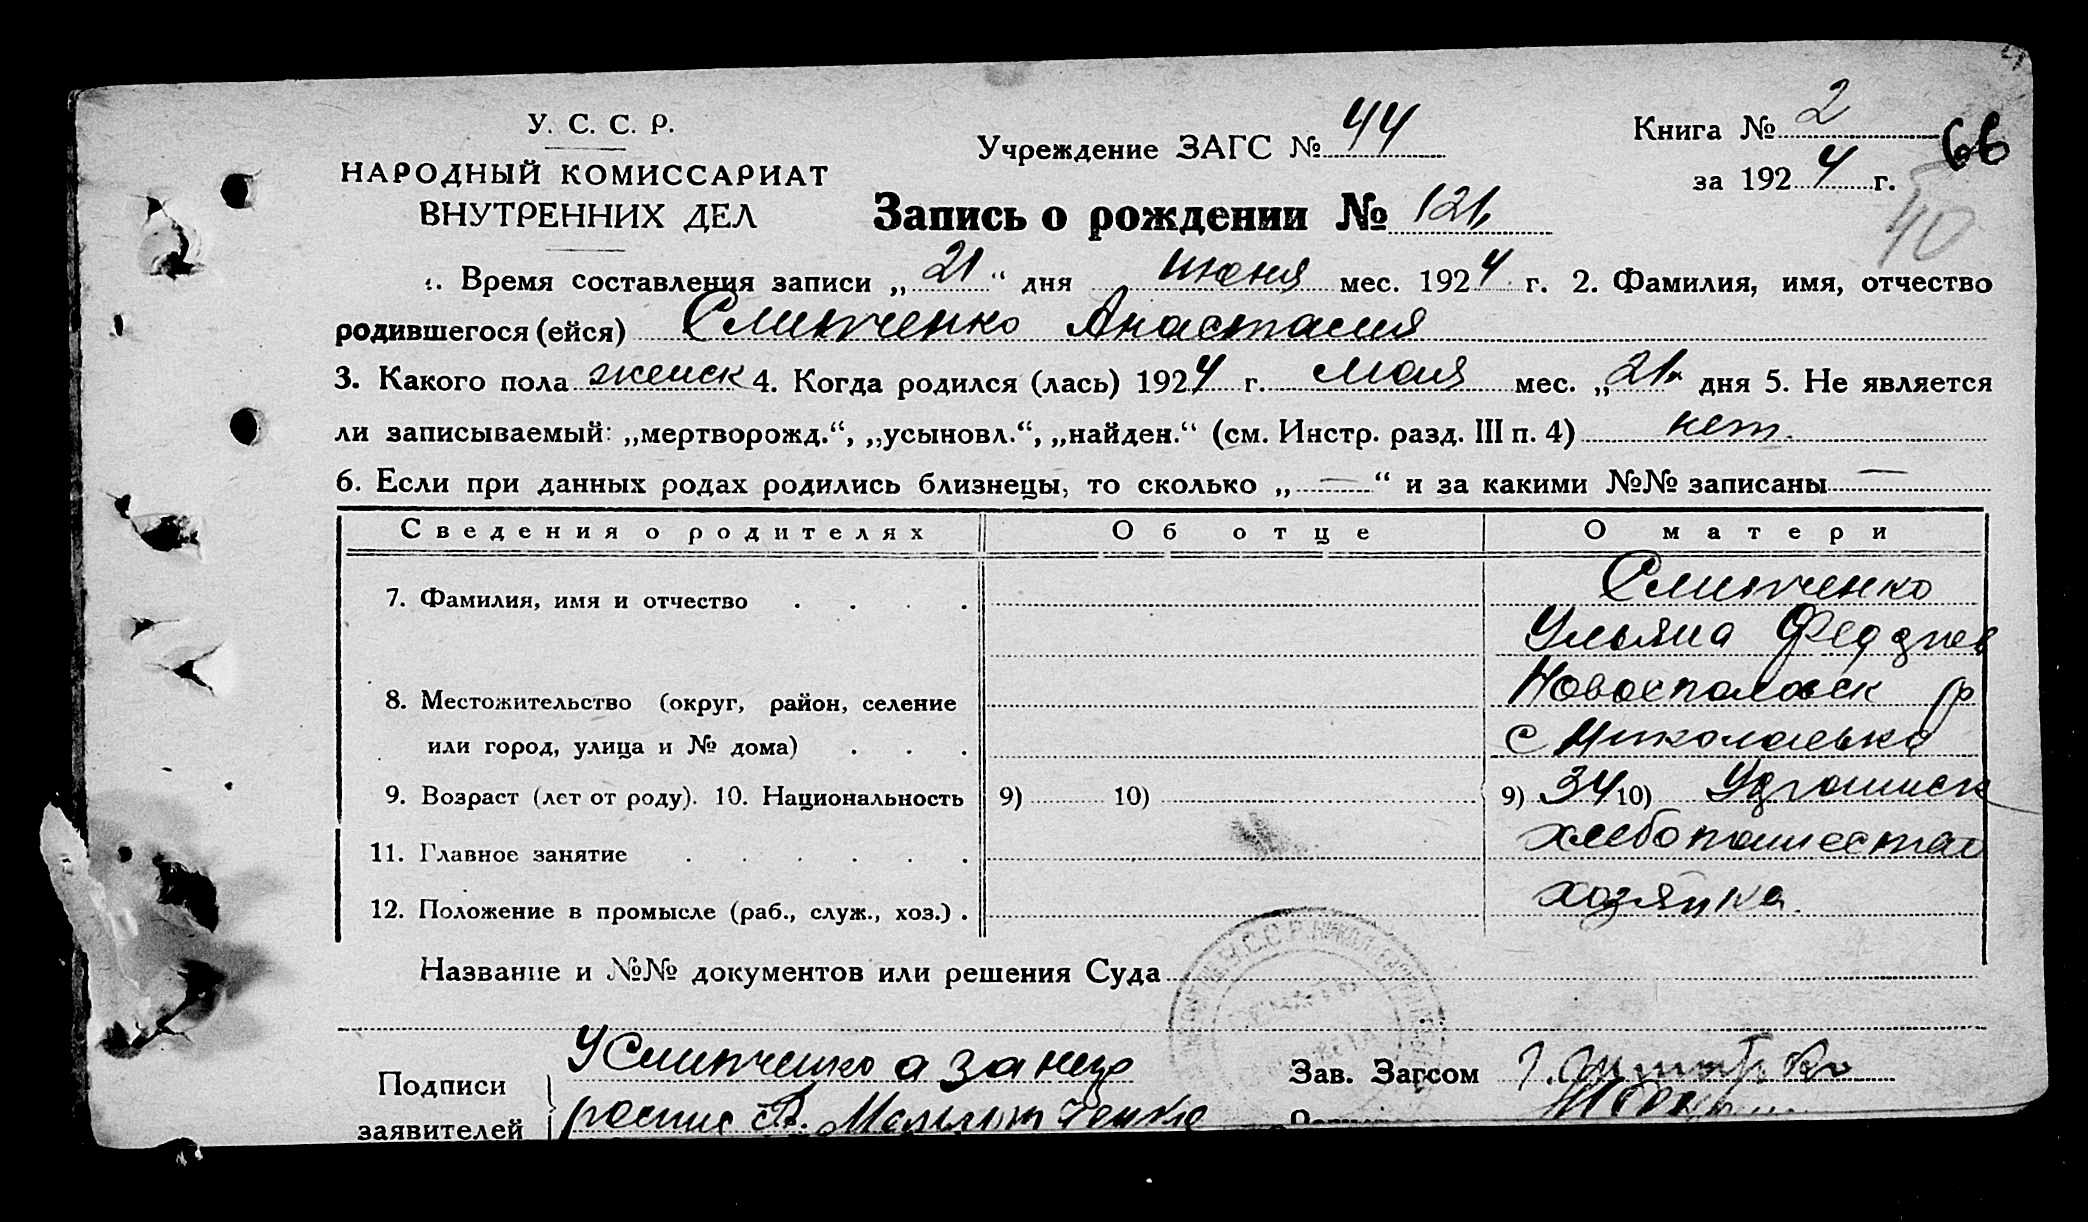 У. С. С. Р.
НАРОДНЫЙ КОМИССАРИАТ
ВНУТРЕННИХ ДЕЛ
Учреждение ЗАГС № 44
Книга № 2
66
за 1924 г.
40
Запись о рождении № 121
1. Время составления записи „21“ дня июня мес. 1924 г. 2. Фамилия, имя, отчество
родившегося (ейся) Слипченко Анастасия
3. Какого пола женск 4. Когда родился (лась) 1924 г. мая мес. „21“ дня 5. Не является
ли записываемый: „мертворожд.“, „усыновл.“, „найден.“ (см. Инстр. разд. III п. 4) нет.
6. Если при данных родах родились близнецы, то сколько „—“ и за какими №№ записаны —
Сведения о родителях Об отце О матери
7. Фамилия, имя и отчество . . . . Слипченко
Ульяна
8. Местожительство (округ, район, селение Новоспасск р
или город, улица и № дома) . . . с Николаевка
9. Возраст (лет от роду). 10. Национальность 9) 10) 9) 34 10) Украинск
11. Главное занятие . . . . . . хлебопашество
12. Положение в промысле (раб., служ., хоз.) . хозяйка.
Название и №№ документов или решения Суда
Подписи У Слипченко а за неур
заявителей роспис А.
Зав. Загсом